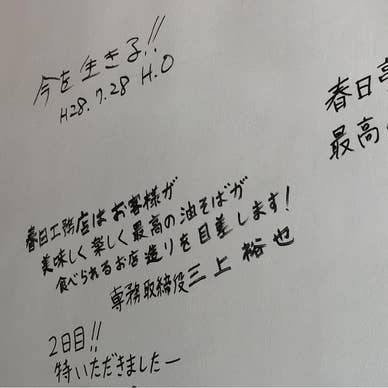 今を生きる!!
H28.7.28 H.O
春日
最高
春日工務店はお客様が
美味しく楽しく最高の油そばが
食べられるお店造りを目差します!
専務取締役三上裕也
2日目!!
特いただきましたー